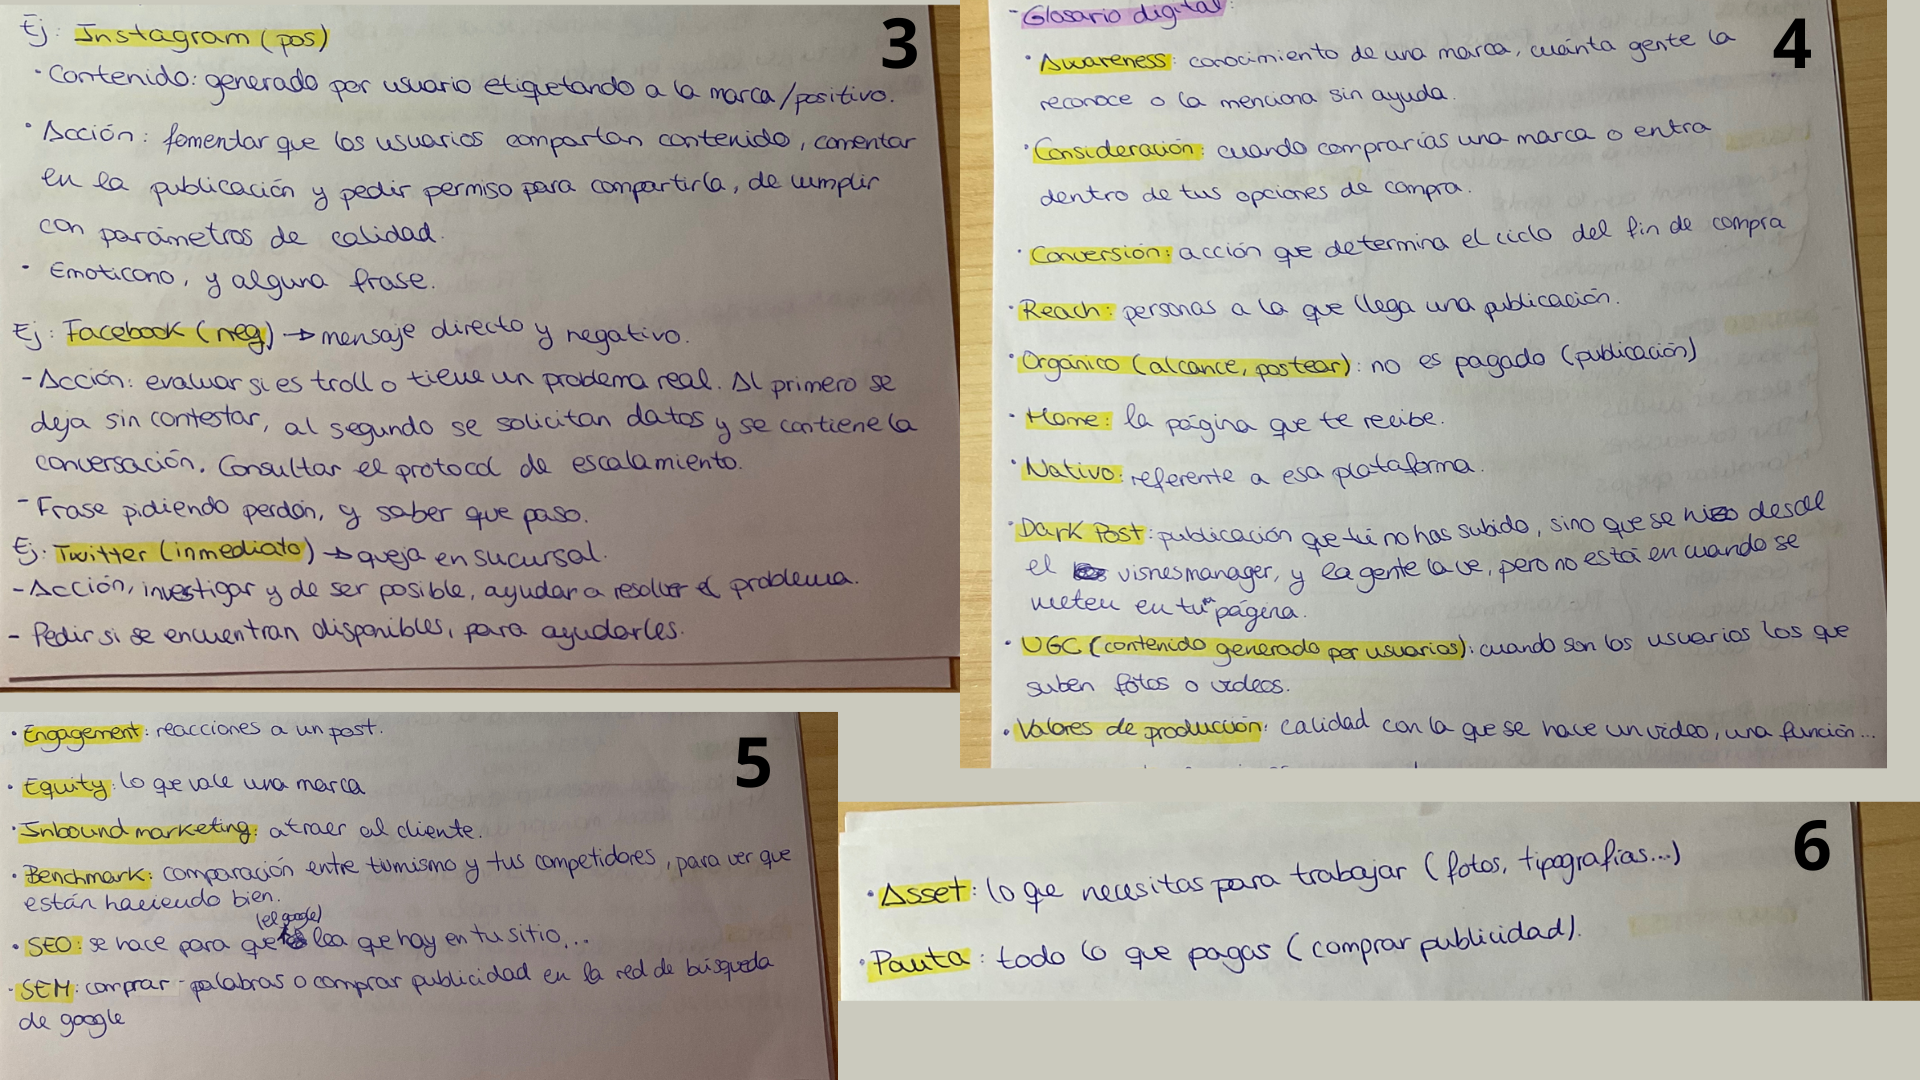 3
Ej: Instagram (pos)
· Contenido: generado por usuario etiquetando a la marca/positivo.
· Acción: fomentar que los usuarios compartan contenido, comentar
en la publicación y pedir permiso para compartirla, de cumplir
con parámetros de calidad.
· Emoticono, y alguna frase.
Ej: Facebook (neg) → mensaje directo y negativo.
- Acción: evaluar si es troll o tiene un problema real. Al primero se
deja sin contestar, al segundo se solicitan datos y se contiene la
conversación. Consultar el protocol de escalamiento.
- Frase pidiendo perdón, y saber que paso.
Ej: Twitter (inmediato) → queja en sucursal.
- Acción, investigar y de ser posible, ayudar a resolver el problema.
- Pedir si se encuentran disponibles, para ayudarles.
4
- Glosario digital:
· Awareness: conocimiento de una marca, cuánta gente la
reconoce o la menciona sin ayuda.
· Consideración: cuando comprarías una marca o entra
dentro de tus opciones de compra.
· Conversión: acción que determina el ciclo del fin de compra
· Reach: personas a la que llega una publicación.
· Orgánico (alcance, postear): no es pagado (publicación)
· Home: la página que te recibe.
· Nativo: referente a esa plataforma.
· Dark Post: publicación que tú no has subido, sino que se hizo desde
el visnesmanager, y la gente la ve, pero no está en cuando se
meten en tu página.
· UGC (contenido generado por usuarios): cuando son los usuarios los que
suben fotos o videos.
· Valores de producción: calidad con la que se hace un video, una función...
5
· Engagement: reacciones a un post.
· Equity: lo que vale una marca
· Inbound marketing: atraer al cliente.
· Benchmark: comparación entre tumismo y tus competidores, para ver que
están haciendo bien.
(el google)
· SEO: se hace para que lea que hay en tu sitio...
· SEM: comprar palabras o comprar publicidad en la red de búsqueda
de google
6
· Asset: lo que necesitas para trabajar (fotos, tipografías...)
· Pauta: todo lo que pagas (comprar publicidad).